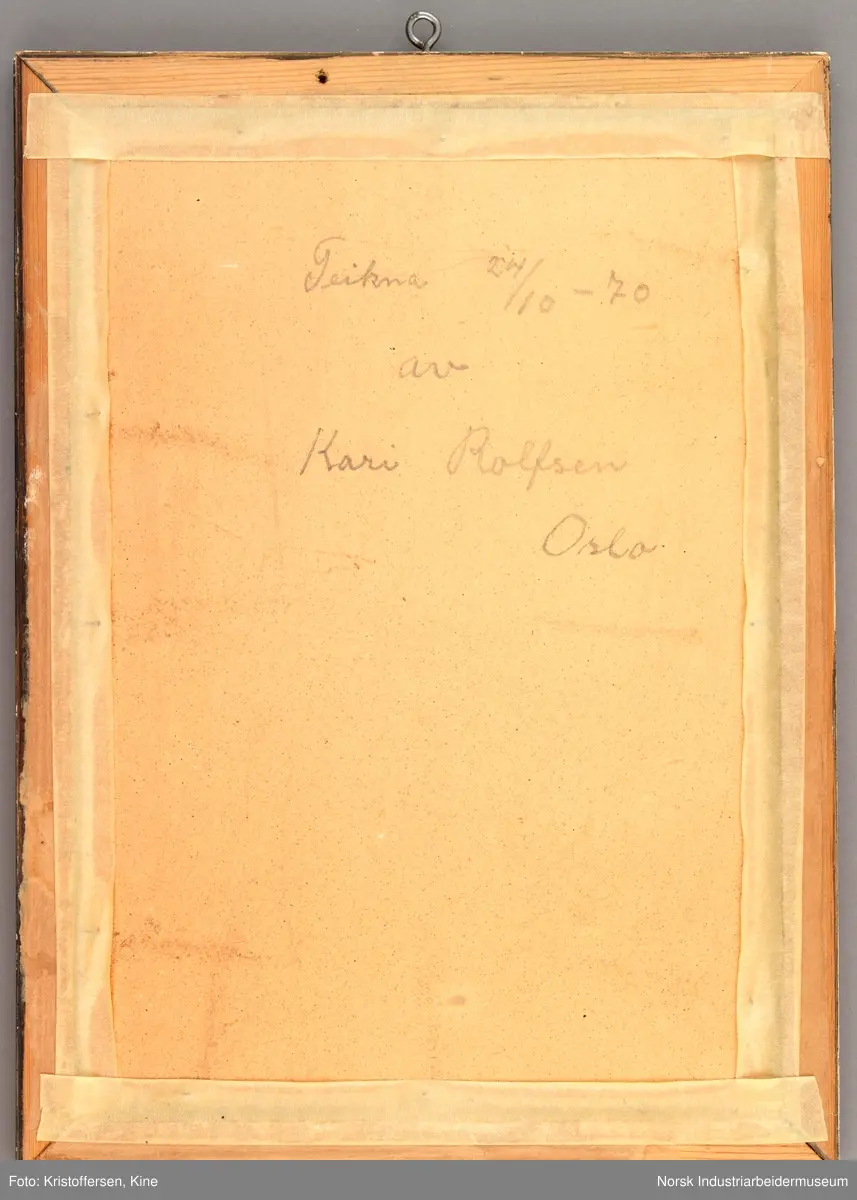 Teikna 24/10 - 70
av
Kari Rolfsen
Oslo
Foto: Kristoffersen, Kine
Norsk Industriarbeidermuseum